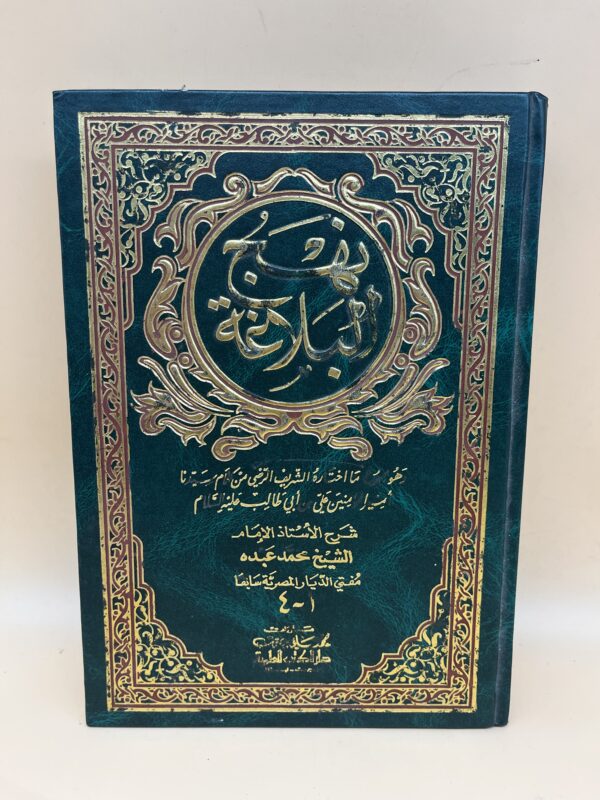 نهج
البلاغة
وهو ما اختاره الشريف الرضي من كلام سيدنا
أمير المؤمنين علي بن أبي طالب عليه السلام
شرح الأستاذ الإمام
الشيخ محمد عبده
مفتي الديار المصرية سابقا
١-٤
دار الكتب العلمية